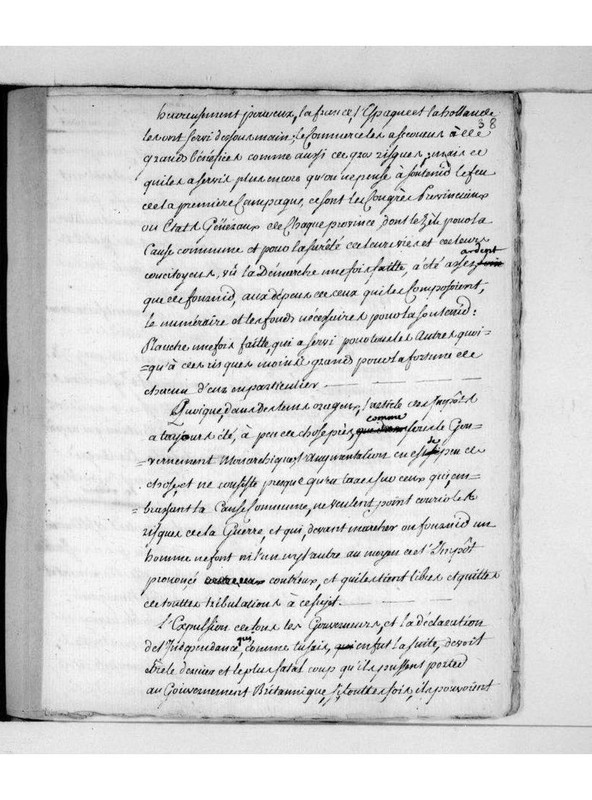 heureusement pour eux, la france, l'Espagne et la hollande
38
les ont servi desous main; le Commerce les a secourus à de
grands bénéfices comme aussi de gros risques; mais ce
qui les a servis plus encore qu'on ne pense à soutenir le feu
de la premiere Campagne, ce sont les Congrès Provinciaux
ou Etats Généraux de Chaque province, dont le Zèle pour la
Cause commune et pour la sureté de leurs vies et de leurs
concitoyens, vû la Démarche une fois faitte, a été assez ardent
que de fournir, aux dépens de ceux qui les Composoient,
le numéraire et les fonds nécessaires pour la soutenir:
Planche une fois faitte, qui a servi pour tous les Autres quoi-
=qu'à des risques moins grands pour la fortune de
chacun d'eux en particulier
Quoique, dans des tems orageux, l'article des Impôts
a toujours été, à peu de chose près, comme sous le Gou-
=vernement Monarchique, l'augmentation en est de peu de
chose, et ne consiste presque qu'en taxes sur ceux qui, em-
=brassant la Cause Commune, ne veulent point courir les
risques de la Guerre, et qui, devant marcher ou fournir un
homme ne font ni l'un ny l'autre au moyen de l'Impôt
prononcé contr'eux, et qui les tient libres et quittes
de touttes tribulations à ce sujet.
L'Expulsion de tous les Gouverneurs, et la déclaration
de l'Independance, comme en fut la suite, devoit
être le dernier et le plus fatal coup qu'ils pussent porter
au Gouvernement Britannique, si, touttes fois, ils pouvoient